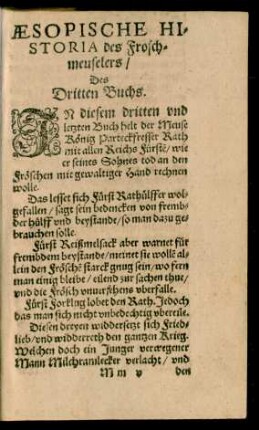 ÆSOPISCHE HI-
STORIA des Frosch-
meuselers/
Des
Dritten Buchs.
IN diesem dritten vnd
letzten Buch helt der Meuse
König Parteckfresser Rath
mit allen Reichs Fürstē/ wie
er seines Sohnes tod an den
Fröschen mit gewaltiger Hand rechnen
wolle.
Das lesset sich Fürst Rathülffer wol
gefallen/ sagt sein bedencken von fremb-
der hülff vnd beystande/ so man dazu ge-
brauchen solle.
Fürst Reißmelsack aber warnet für
frembdem beystande/ meinet sie wollē al-
lein den Fröschē starck gnug sein/ wo fern
man einig bleibe/ eilend zur sachen thue/
vnd die Frösch vnuersehens vberfalle.
Fürst Forkling lobet den Rath. Jedoch
das man sich nicht vnbedechtig vbereile.
Diesen dreyen widdersetzt sich Fried-
lieb/ vnd widderreth den gantzen Krieg.
Welchen doch ein Junger verwegener
Mann Milchramlecker verlacht/ vnd
M m v den